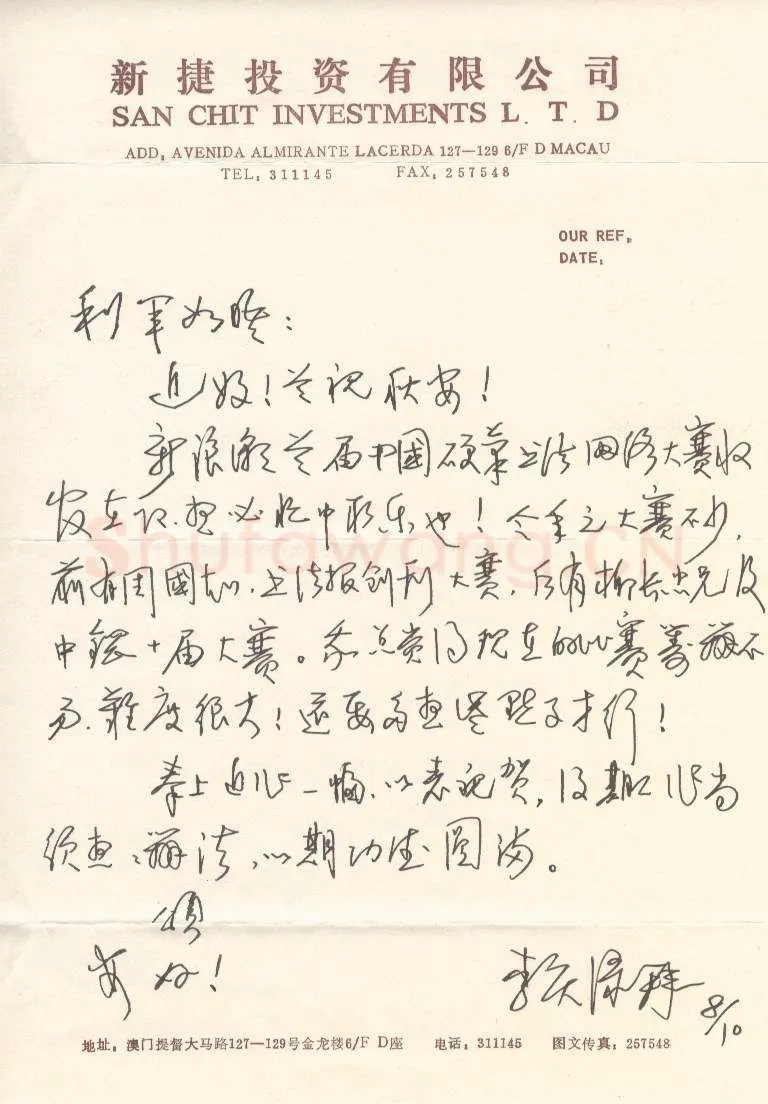 新捷投资有限公司
SAN CHIT INVESTMENTS L. T. D
ADD: AVENIDA ALMIRANTE LACERDA 127—129 6/F D MACAU
TEL: 311145 FAX: 257548
OUR REF:
DATE:
利军如晤：
近好！并祝秋安！
新浪潮首届中国硬笔书法网络大赛收
发在即，想必忙中取乐也！今年之大赛不少，
前有周国城、书法报创刊大赛，后有柳长忠兄及
中钢十届大赛。我总觉得现在的比赛筹办不
易，难度很大！还要多想些点子才行！
奉上近作一幅，以表祝贺，后期工作尚
须想想办法，以期功德圆满。
顺
安好！
8/10
地址：澳门提督大马路127—129号金龙楼6/F D座 电话：311145 图文传真：257548
Shufawang.CN